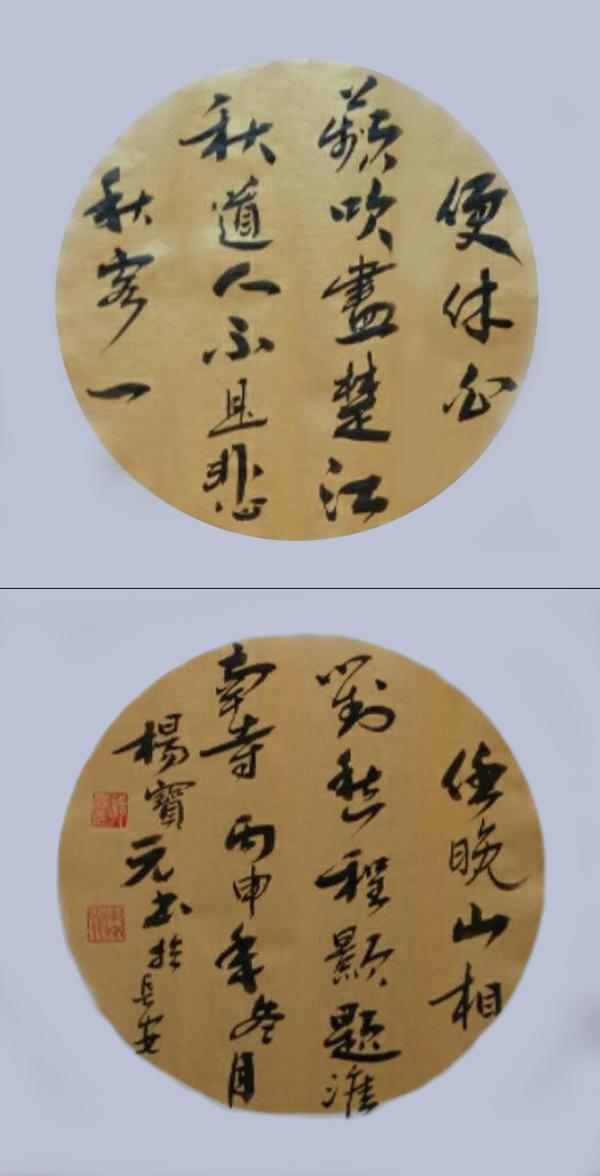 便休白
蘋吹盡楚江
秋道人不是悲
秋客一
任晚山相
對愁程顥題淮
南寺 丙申年叁月
楊寶元書於長安